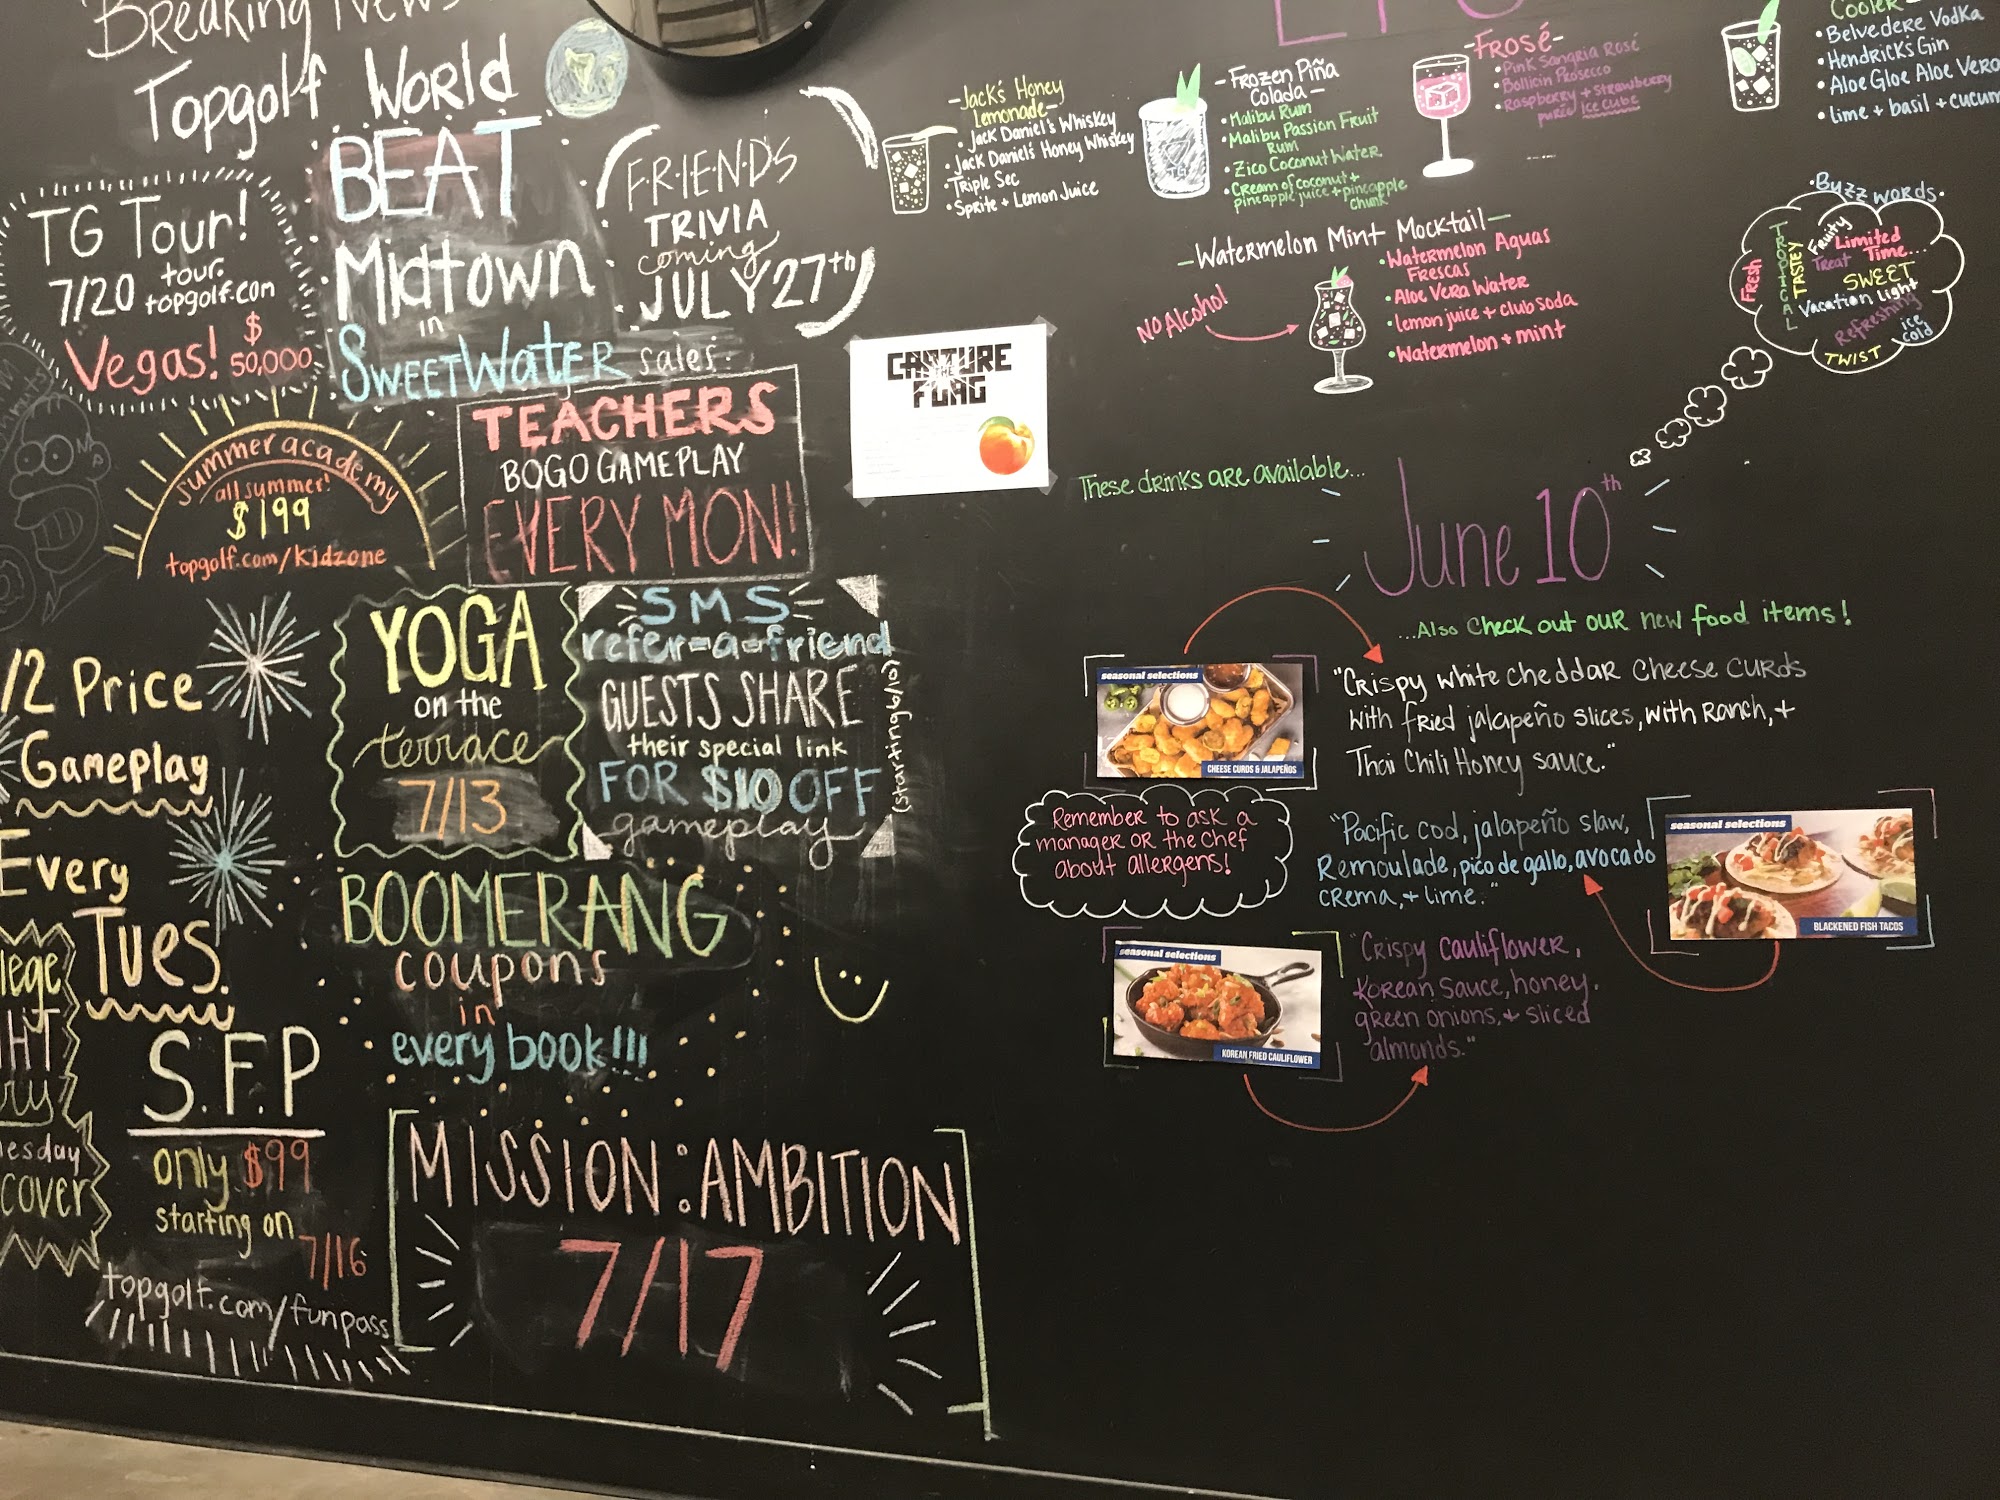 Breaking News
Topgolf World
TG Tour!
7/20 tour.
topgolf.com
Vegas! $
50,000
BEAT
Midtown
in
SWEETWATER sales!
F.R.I.E.N.D.S
TRIVIA
coming
JULY 27th
summer academy
all summer!
$199
topgolf.com/kidzone
TEACHERS
BOGO GAMEPLAY
EVERY MON!
CAPTURE
THE
FLAG
/2 Price
Gameplay
Every
Tues.
YOGA
on the
terrace
7/13
SMS
refer-a-friend
GUESTS SHARE
their special link
FOR $10 OFF
gameplay
(starting 6/10)
BOOMERANG
coupons
in
every book!!!
lege
HT
esday
cover
S.F.P
only $99
starting on
7/16
topgolf.com/funpass
MISSION: AMBITION
7/17
-Jack's Honey
Lemonade-
• Jack Daniel's Whiskey
• Jack Daniel's Honey Whiskey
• Triple Sec
• Sprite + Lemon Juice
-Frozen Piña
Colada-
• Malibu Rum
• Malibu Passion Fruit
Rum
• Zico Coconut Water
• Cream of coconut +
pineapple juice + pineapple
chunk
TG
-FROSÉ-
• Pink Sangria Rosé
• Bollicin Prosecco
• Raspberry + strawberry
purée ice cube
Cooler-
• Belvedere Vodka
• Hendrick's Gin
• Aloe Gloe Aloe Vera
• lime + basil + cucum
-Watermelon Mint Mocktail-
No Alcohol
• Watermelon Aguas
Frescas
• Aloe Vera Water
• lemon juice + club soda
• Watermelon + mint
• Buzz words •
Fresh
TROPICAL
TASTEY
Fruity
Limited
Time...
Treat
SWEET
Vacation Light
Refreshing
ice
cold
TWIST
These drinks are available...
June 10th
...Also check out our new food items!
seasonal selections
CHEESE CURDS & JALAPEÑOS
"Crispy white cheddar cheese curds
with fried jalapeño slices, with Ranch, +
Thai Chili Honey sauce."
Remember to ask a
manager or the chef
about allergens!
"Pacific cod, jalapeño slaw,
Remoulade, pico de gallo, avocado
crema, + lime."
seasonal selections
BLACKENED FISH TACOS
seasonal selections
KOREAN FRIED CAULIFLOWER
"Crispy cauliflower,
Korean sauce, honey,
green onions, + sliced
almonds."